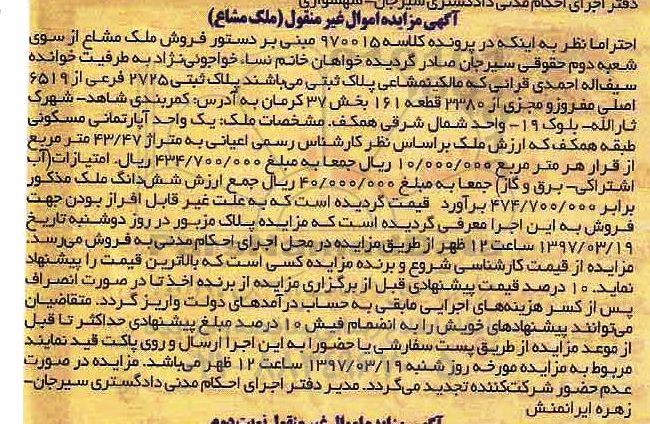 دفتر اجرای احکام مدنی دادگستری سیرجان- سهسواری
آگهی مزایده اموال غیر منقول (ملک مشاع)
احتراما نظر به اینکه در پرونده کلاسه ۹۷۰۰۱۵ مبنی بر دستور فروش ملک مشاع از سوی
شعبه دوم حقوقی سیرجان صادر گردیده خواهان خانم نساء خواجوئی‌نژاد به طرفیت خوانده
سیف‌اله احمدی قرائی که مالکیتمشاعی پلاک ثبتی می‌باشند پلاک ثبتی ۲۷۲۵ فرعی از ۶۵۱۹
اصلی مفروز و مجزی از ۲۳۸۰ قطعه ۱۶۱ بخش ۳۷ کرمان به آدرس: کمربندی شاهد- شهرک
ثارالله- بلوک ۱۹- واحد شمال شرقی همکف. مشخصات ملک: یک واحد آپارتمانی مسکونی
طبقه همکف که ارزش ملک براساس نظر کارشناس رسمی اعیانی به متراژ ۴۳/۴۷ متر مربع
از قرار هر متر مربع ۱۰/۰۰۰/۰۰۰ ریال جمعا به مبلغ ۴۳۴/۷۰۰/۰۰۰ ریال. امتیازات(آب
اشتراکی- برق و گاز) جمعا به مبلغ ۴۰/۰۰۰/۰۰۰ ریال جمع ارزش شش‌دانگ ملک مذکور
برابر ۴۷۴/۷۰۰/۰۰۰ برآورد قیمت گردیده است که به علت غیر قابل افراز بودن جهت
فروش به این اجرا معرفی گردیده است که مزایده پلاک مزبور در روز دوشنبه تاریخ
۱۳۹۷/۰۳/۱۹ ساعت ۱۲ ظهر از طریق مزایده در محل اجرای احکام مدنی به فروش می‌رسد.
مزایده از قیمت کارشناسی شروع و برنده مزایده کسی است که بالاترین قیمت را پیشنهاد
نماید. ۱۰ درصد قیمت پیشنهادی قبل از برگزاری مزایده از برنده اخذ تا در صورت انصراف
پس از کسر هزینه‌های اجرایی مابقی به حساب درآمدهای دولت واریز گردد. متقاضیان
می‌توانند پیشنهادهای خویش را به انضمام فیش ۱۰ درصد مبلغ پیشنهادی حداکثر تا قبل
از موعد مزایده از طریق پست سفارشی یا حضورا به این اجرا ارسال و روی پاکت قید نمایند
مربوط به مزایده مورخه روز شنبه ۱۳۹۷/۰۳/۱۹ ساعت ۱۲ ظهر می‌باشد. مزایده در صورت
عدم حضور شرکت‌کننده تجدید می‌گردد. مدیر دفتر اجرای احکام مدنی دادگستری سیرجان-
زهره ایرانمنش
آگهی مزایده اموال غیر منقول نوبت دوم